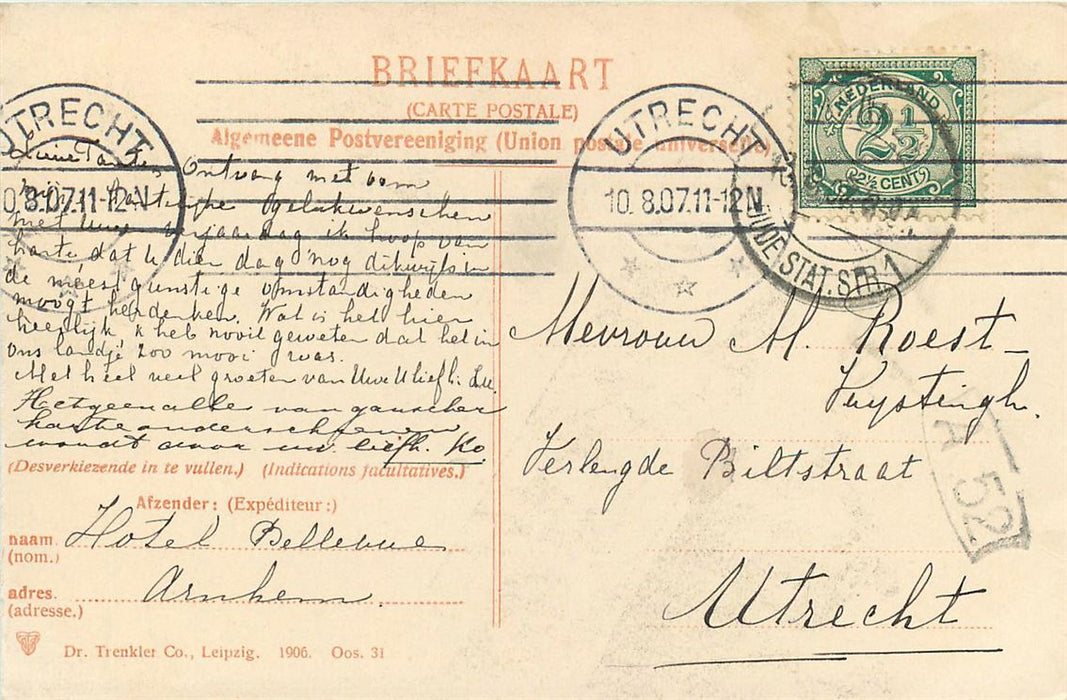 BRIEFKAART
(CARTE POSTALE)
Algemeene Postvereeniging (Union postale universelle)
UTRECHT
10.8.07.11-12N
UTRECHT
10.8.07.11-12N
NEDERLAND
2½
2½ CENT
OUDE STAT.STR. 1
Lieve Tante
Ontvang met oom
mijn hartelijke gelukwenschen
met uw verjaardag ik hoop van
harte dat u dien dag nog dikwijls in
de meest gunstige omstandigheden
moogt herdenken. Wat is het hier
heerlijk ik heb nooit geweten dat het in
ons landje zoo mooi was.
Met heel veel groeten van Uwe U liefh.
Hetgeen alles van ganscher
harte onderschreven
wordt door uw liefh. Ko
(Desverkiezende in te vullen.) (Indications facultatives.)
Afzender: (Expéditeur:)
naam. Hotel Bellevue
(nom.)
adres. Arnhem.
(adresse.)
Dr. Trenkler Co., Leipzig. 1906. Oos. 31
Mevrouw M. Roest-
Kuystingh.
Verlengde Biltstraat
Utrecht
A 52